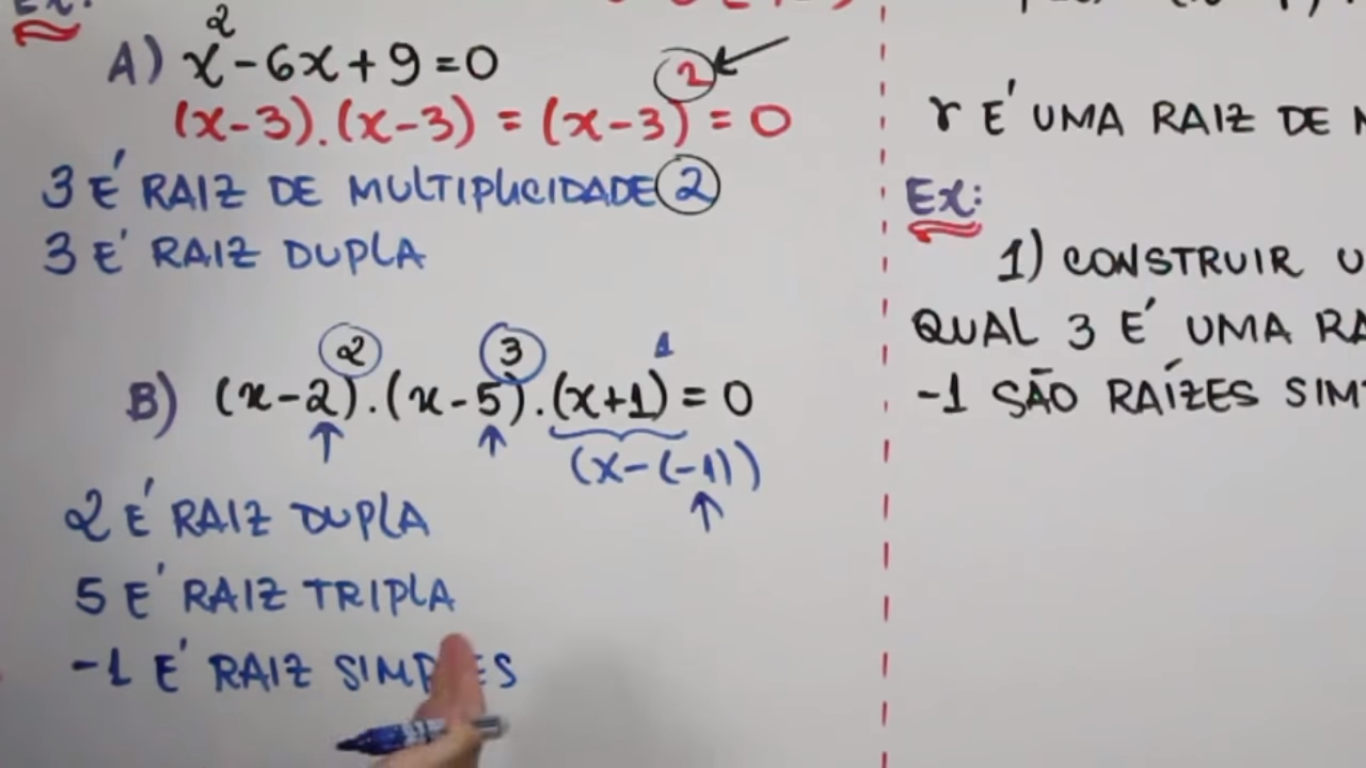 Ex:
A) x² - 6x + 9 = 0
(x-3).(x-3) = (x-3)² = 0
3 É RAIZ DE MULTIPLICIDADE 2
3 É RAIZ DUPLA
B) (x-2)².(x-5)³.(x+1)¹ = 0
(x-(-1))
2 É RAIZ DUPLA
5 É RAIZ TRIPLA
-1 É RAIZ SIMPLES
r É UMA RAIZ DE
Ex:
1) CONSTRUIR U
QUAL 3 É UMA RA
-1 SÃO RAÍZES SIM